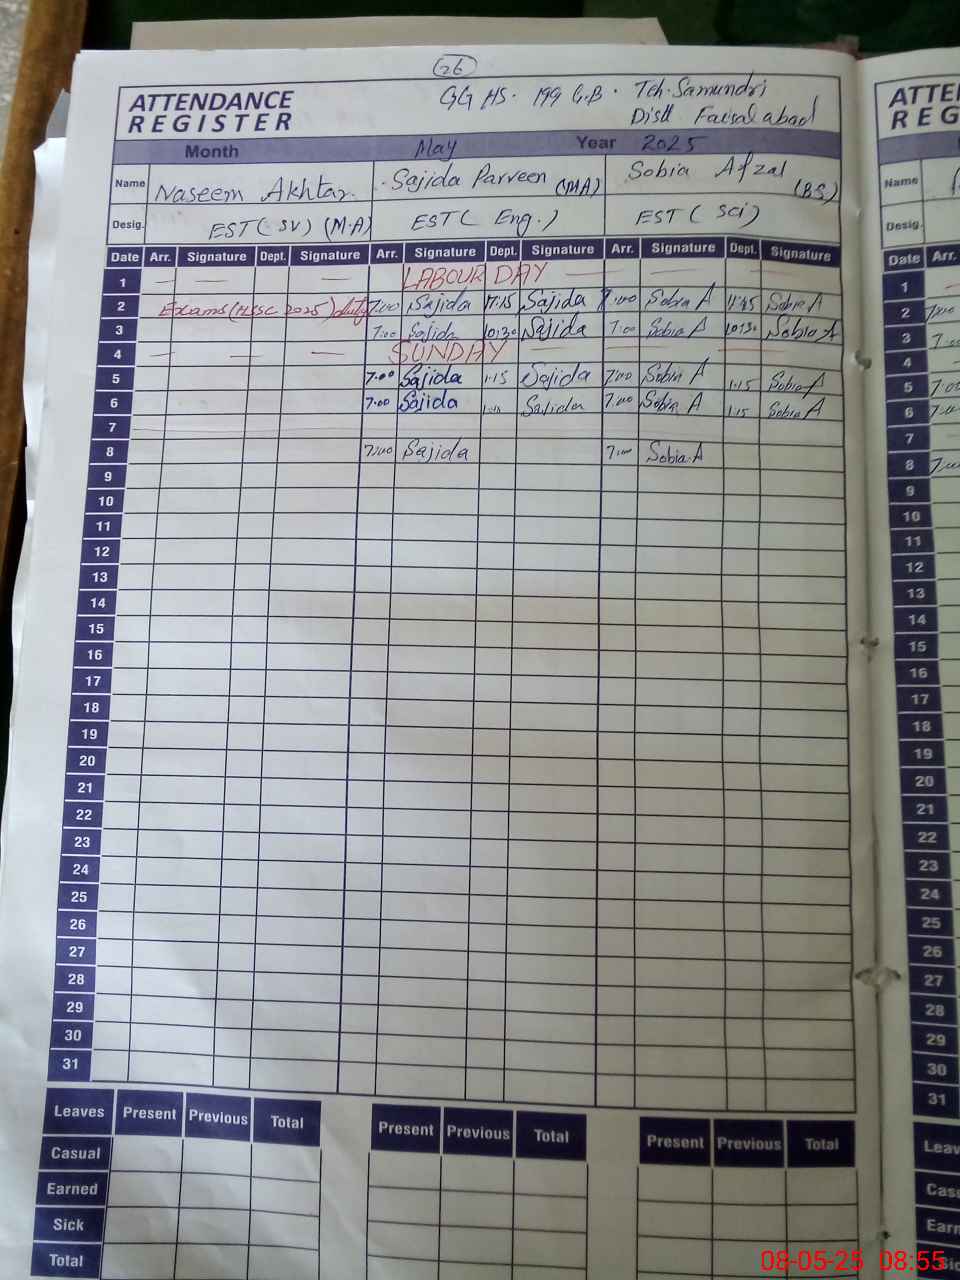 26
GGHS. 199 G.B. Teh. Samundri
Distt Faisalabad
ATTENDANCE
REGISTER
Month May Year 2025
Name Naseem Akhtar. Sajida Parveen (MA) Sobia Afzal (BS)
Desig. EST (SV) (M.A) EST (Eng.) EST (Sci)
Date Arr. Signature Dept. Signature Arr. Signature Dept. Signature Arr. Signature Dept. Signature
1 LABOUR DAY
2 Exams (HSSC 2025) duty 7:00 Sajida 11:15 Sajida 7:00 Sobia A 11:15 Sobia A
3 7:00 Sajida 10:30 Sajida 7:00 Sobia A 10:30 Sobia A
4 SUNDAY
5 7:00 Sajida 1:15 Sajida 7:00 Sobia A 1:15 Sobia A
6 7:00 Sajida 1:15 Sajida 7:00 Sobia A 1:15 Sobia A
7
8 7:00 Sajida 7:00 Sobia A
9
10
11
12
13
14
15
16
17
18
19
20
21
22
23
24
25
26
27
28
29
30
31
Leaves Present Previous Total Present Previous Total Present Previous Total
Casual
Earned
Sick
Total
ATTE
REG
Name
Desig.
Date Arr.
1
2 7:00
3 7:00
4
5 7:00
6 7:00
7
8 7:00
9
10
11
12
13
14
15
16
17
18
19
20
21
22
23
24
25
26
27
28
29
30
31
Leav
Cas
Earn
Sic
08-05-25 08:55